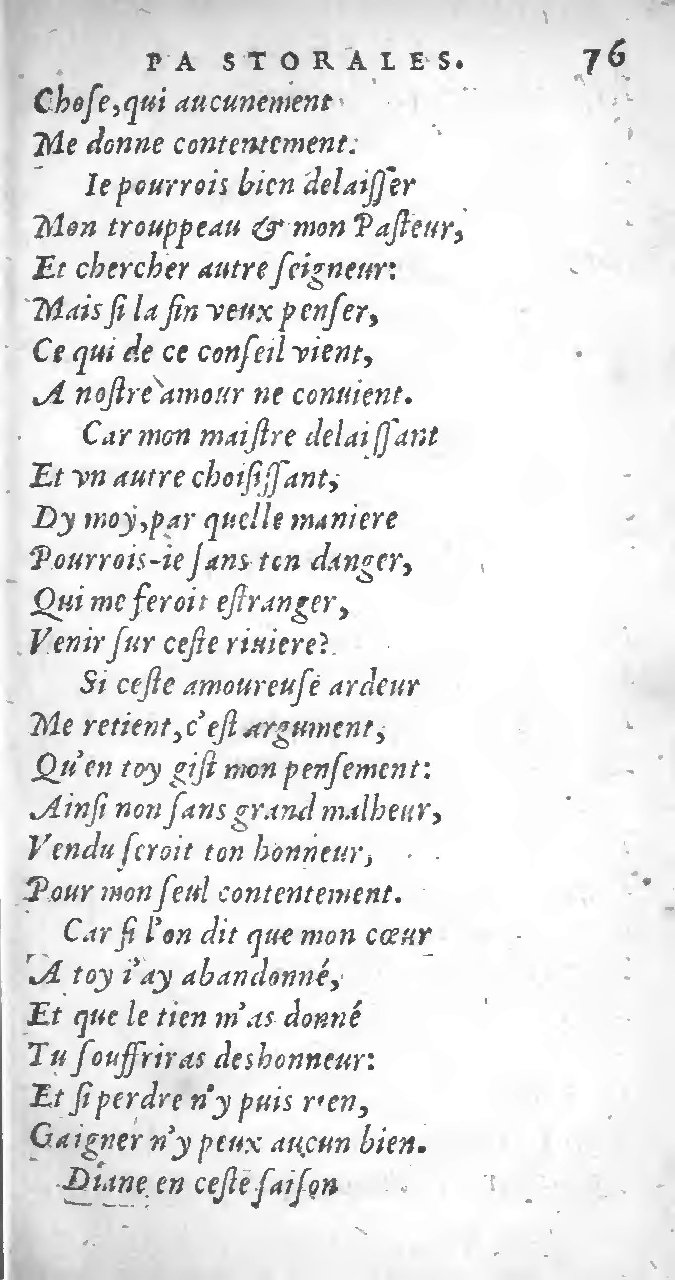 PASTORALES. 76
Choſe, qui aucunement
Me donne contentement.
Ie pourrois bien delaiſſer
Mon trouppeau & mon Paſteur,
Et chercher autre ſeigneur:
Mais ſi la fin veux penſer,
Ce qui de ce conſeil vient,
A noſtre amour ne conuient.
Car mon maiſtre delaiſſant
Et vn autre choiſiſſant,
Dy moy, par quelle maniere
Pourrois-ie ſans ton danger,
Qui me feroit eſtranger,
Venir ſur ceſte riuiere?
Si ceſte amoureuſe ardeur
Me retient, c'eſt argument,
Qu'en toy giſt mon penſement:
Ainſi non ſans grand malheur,
Vendu ſeroit ton honneur,
Pour mon ſeul contentement.
Car ſi l'on dit que mon cœur
A toy i'ay abandonné,
Et que le tien m'as donné
Tu ſouffriras deshonneur:
Et ſi perdre n'y puis rien,
Gaigner n'y peux aucun bien.
Diane en ceſte ſaiſon